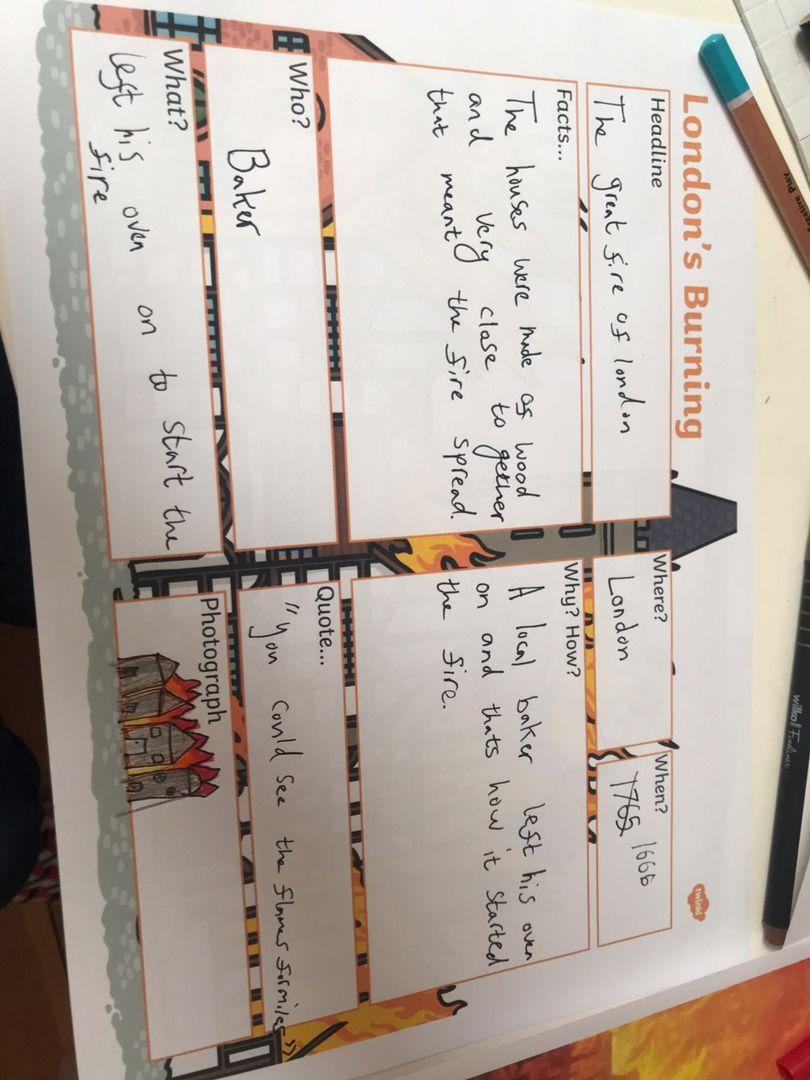 London's Burning
twinkl
Headline
The great fire of london
Where?
London
When?
1765 1666
Facts...
The houses were made of wood
and very close to gether
that meant the fire spread.
Why? How?
A local baker left his oven
on and thats how it started
the fire.
Who?
Baker
Quote...
"you could see the flames formiles"
What?
left his oven on to start the
fire
Photograph
wilko Fineliner
Creative Play